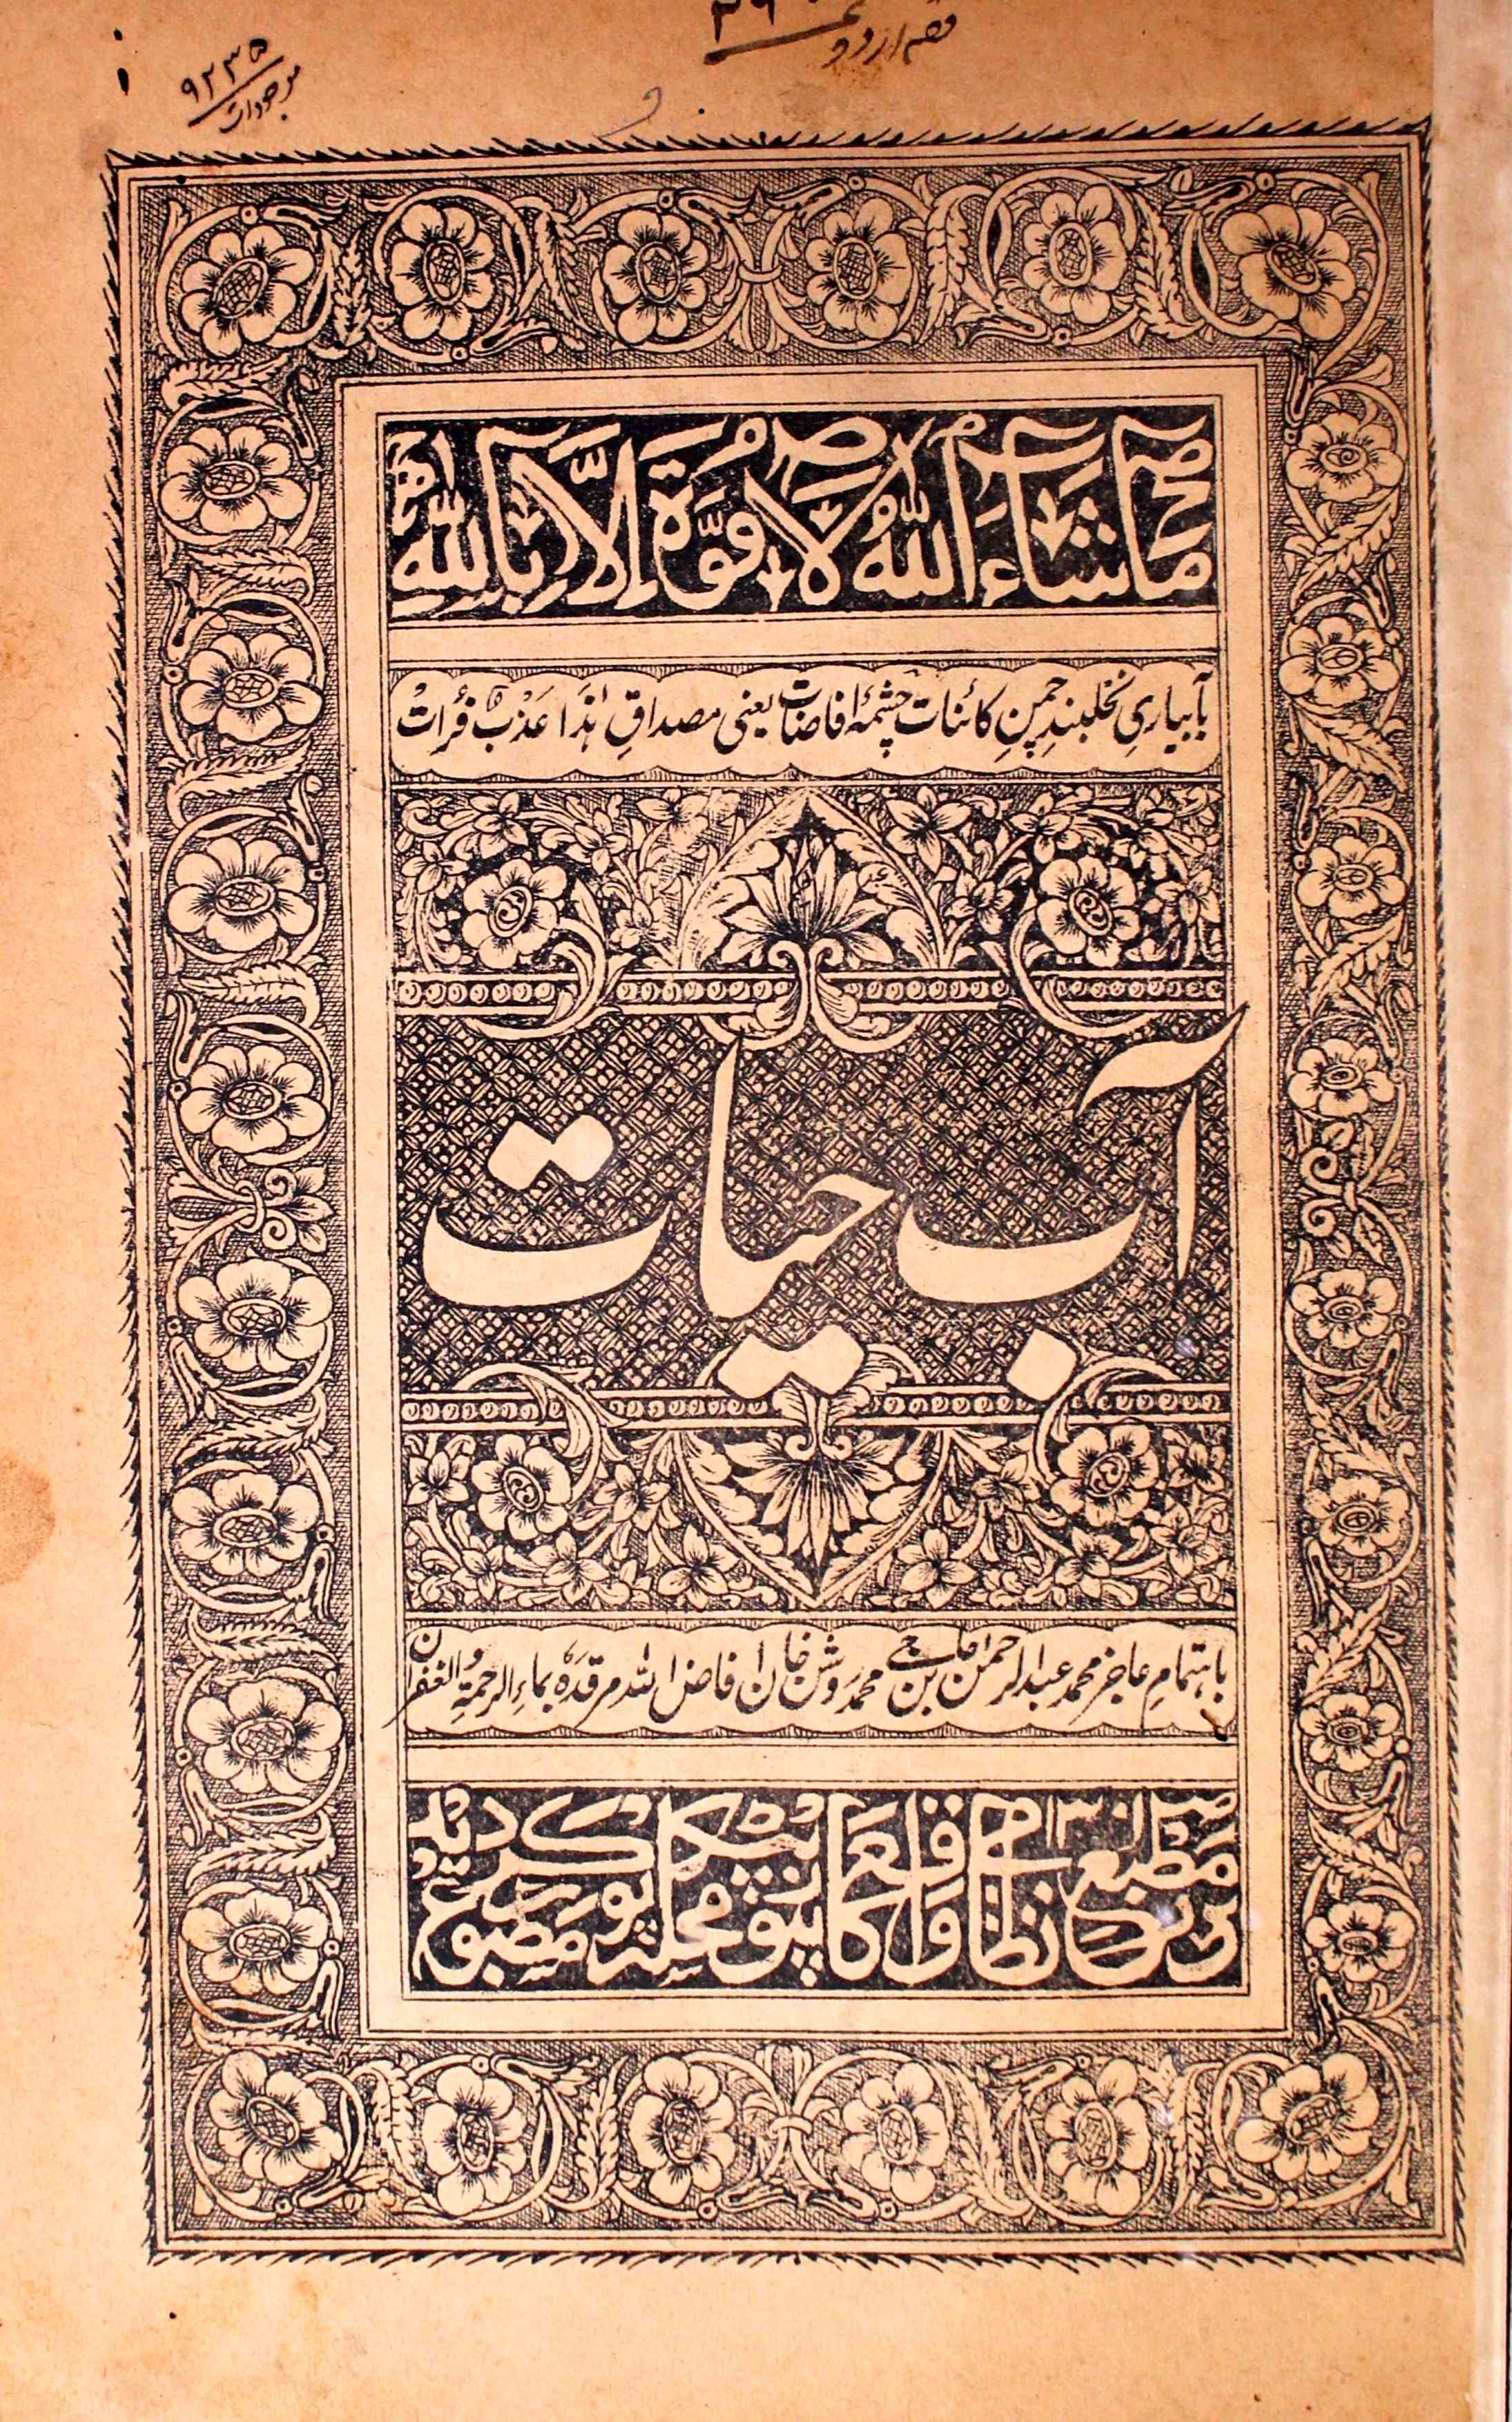 قصہ اردو
۹۲۳۵
موجودات
مَاشَآءَ اللّٰهُ لَا قُوَّةَ اِلَّا بِاللّٰهِ
بآبیاریِ نخلبندِ چمنِ کائنات چشمۂ افاضات یعنی مصداقِ ہٰذَا عَذْبٌ فُرَاتٌ
آب حیات
باہتمامِ عاجز محمد عبدالرحمن بن حاجی محمد روشن خان افاض اللہ مرقدہٗ بماء الرحمۃ والغفران
مطبع نظامی واقع کانپور محلہ پٹکاپور مطبوع گردید